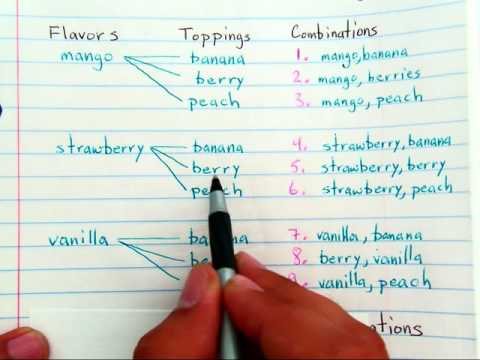 Flavors Toppings Combinations
mango banana 1. mango, banana
berry 2. mango, berries
peach 3. mango, peach
strawberry banana 4. strawberry, banana
berry 5. strawberry, berry
peach 6. strawberry, peach
vanilla banana 7. vanilla, banana
8. berry, vanilla
9. vanilla, peach